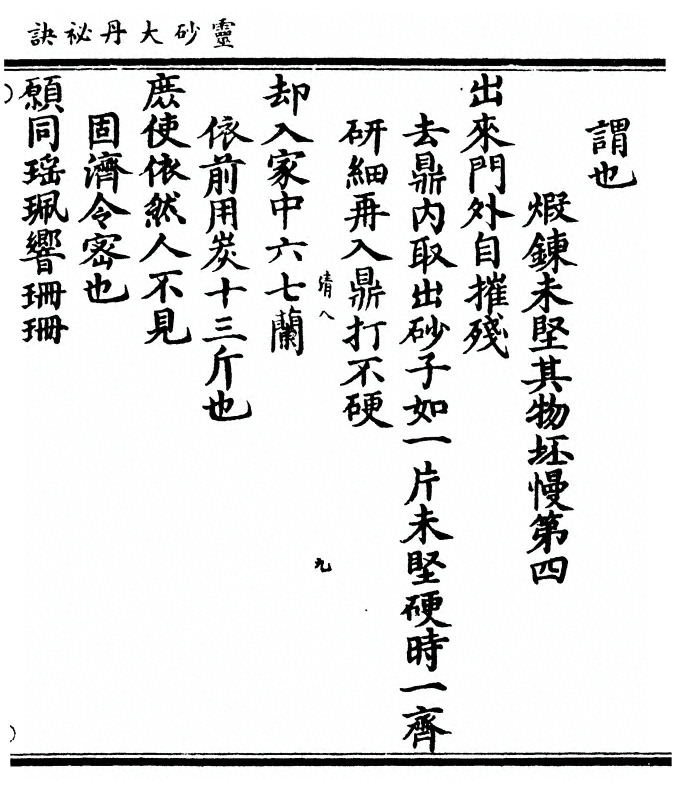 靈砂大丹祕訣
謂也
煆鍊未堅其物坯慢第四
出來門外自摧殘
去鼎内取出砂子如一片未堅硬時一齊
研細再入鼎打不硬
清八
九
却入家中六七蘭
依前用炭十三斤也
庻使依然人不見
固濟令宻也
願同瑶珮響珊珊